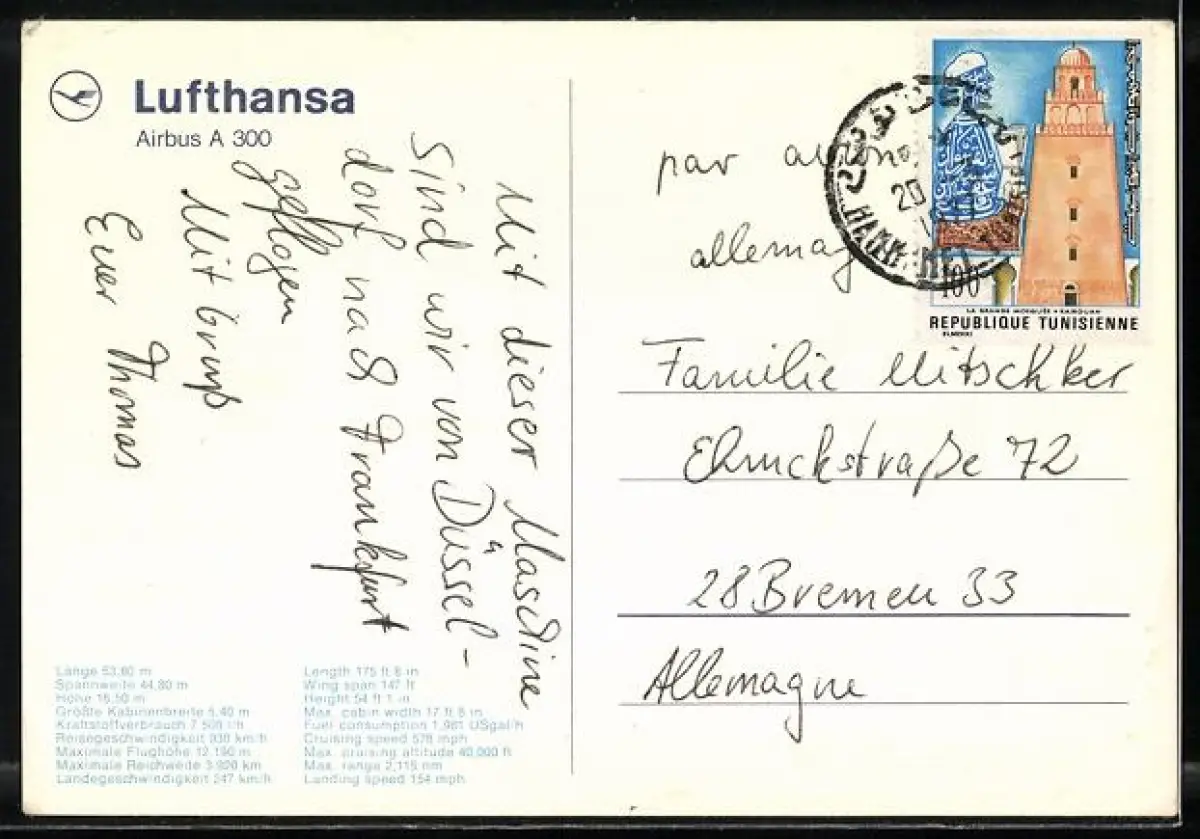 Lufthansa
Airbus A 300
Mit dieser Maschine
sind wir von Düssel-
dorf nach Frankfurt
geflogen
Mit Gruß
Euer Thomas
Länge 53,60 m
Spannweite 44,80 m
Höhe 16,50 m
Größte Kabinenbreite 5,40 m
Kraftstoffverbrauch 7 500 l/h
Reisegeschwindigkeit 930 km/h
Maximale Flughöhe 12.190 m
Maximale Reichweite 3.920 km
Landegeschwindigkeit 247 km/h
Length 175 ft 8 in
Wing span 147 ft
Height 54 ft 1 in
Max. cabin width 17 ft 8 in
Fuel consumption 1,981 USgal/h
Cruising speed 578 mph
Max. cruising altitude 40,000 ft
Max. range 2,115 nm
Landing speed 154 mph
par avion
allemag
100
LA GRANDE MOSQUÉE • KAIROUAN
REPUBLIQUE TUNISIENNE
20
Familie Mitschker
Elmckstraße 72
28 Bremen 33
Allemagne